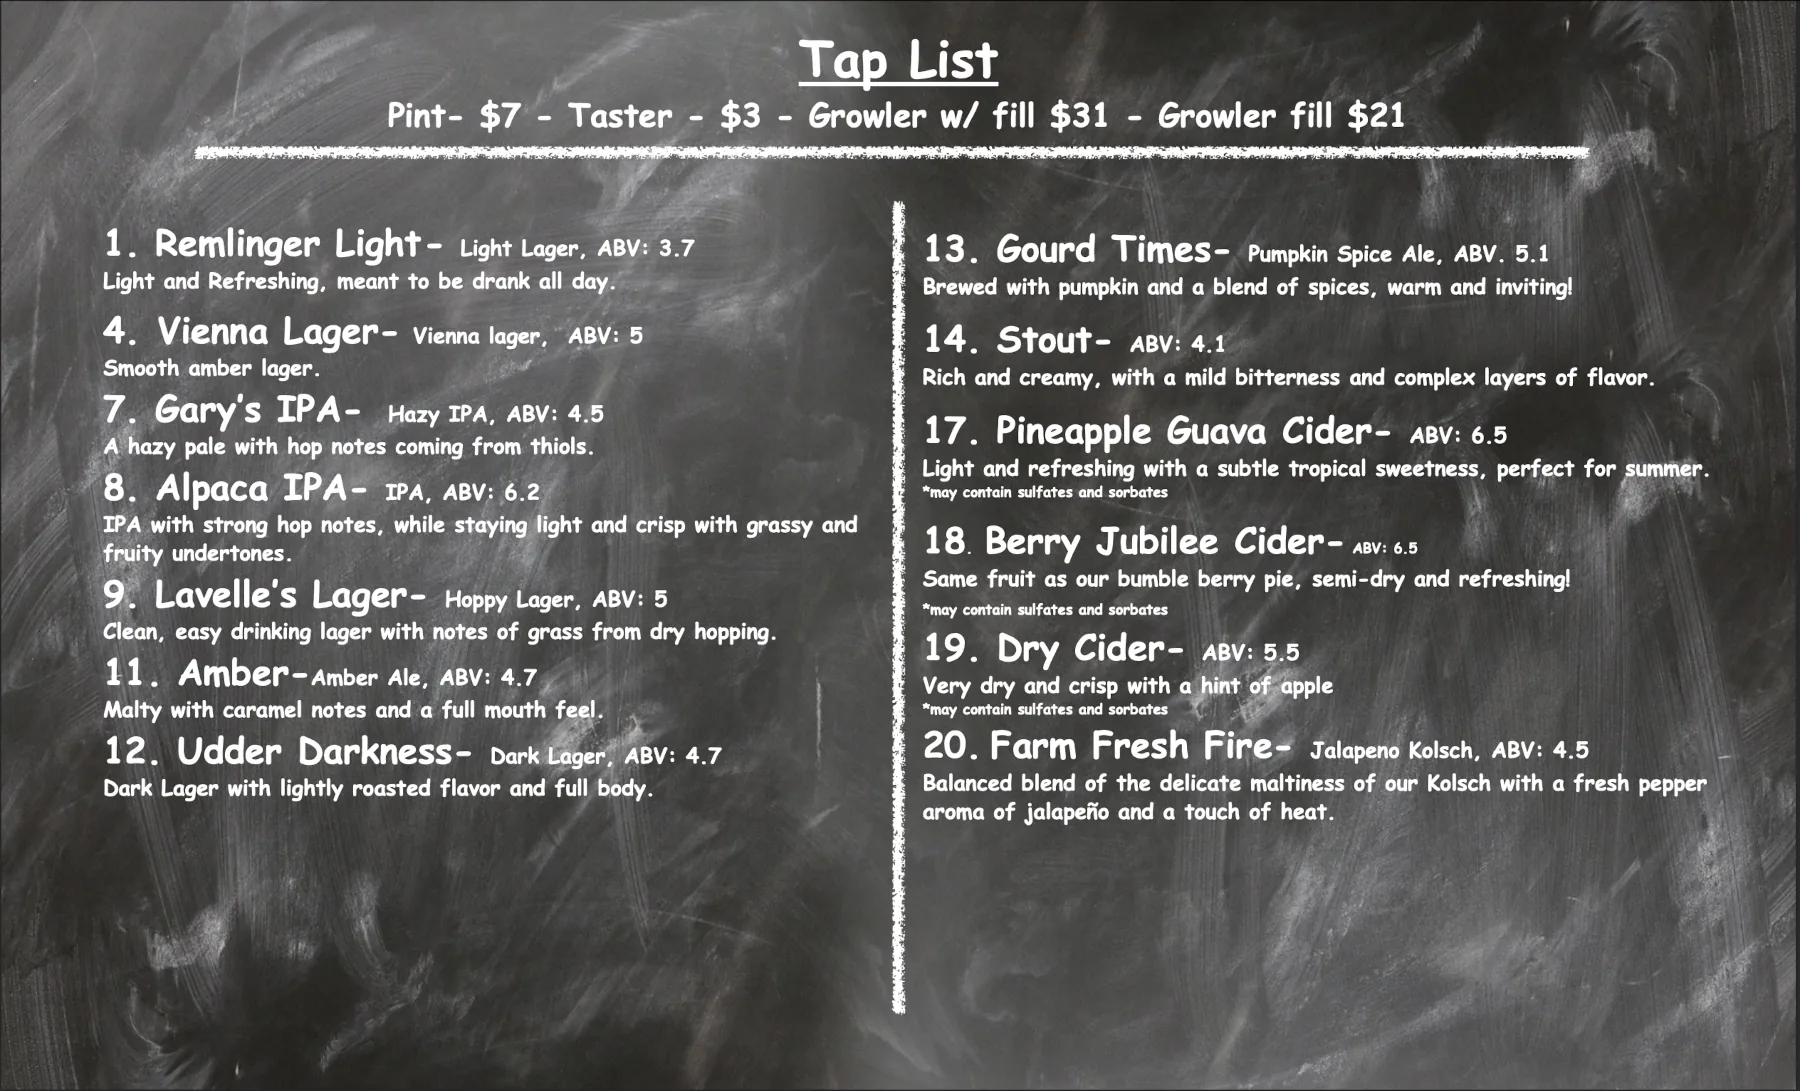 Tap List
Pint- $7 - Taster - $3 - Growler w/ fill $31 - Growler fill $21
1. Remlinger Light- Light Lager, ABV: 3.7
Light and Refreshing, meant to be drank all day.
4. Vienna Lager- Vienna lager, ABV: 5
Smooth amber lager.
7. Gary's IPA- Hazy IPA, ABV: 4.5
A hazy pale with hop notes coming from thiols.
8. Alpaca IPA- IPA, ABV: 6.2
IPA with strong hop notes, while staying light and crisp with grassy and
fruity undertones.
9. Lavelle's Lager- Hoppy Lager, ABV: 5
Clean, easy drinking lager with notes of grass from dry hopping.
11. Amber-Amber Ale, ABV: 4.7
Malty with caramel notes and a full mouth feel.
12. Udder Darkness- Dark Lager, ABV: 4.7
Dark Lager with lightly roasted flavor and full body.
13. Gourd Times- Pumpkin Spice Ale, ABV. 5.1
Brewed with pumpkin and a blend of spices, warm and inviting!
14. Stout- ABV: 4.1
Rich and creamy, with a mild bitterness and complex layers of flavor.
17. Pineapple Guava Cider- ABV: 6.5
Light and refreshing with a subtle tropical sweetness, perfect for summer.
*may contain sulfates and sorbates
18. Berry Jubilee Cider- ABV: 6.5
Same fruit as our bumble berry pie, semi-dry and refreshing!
*may contain sulfates and sorbates
19. Dry Cider- ABV: 5.5
Very dry and crisp with a hint of apple
*may contain sulfates and sorbates
20. Farm Fresh Fire- Jalapeno Kolsch, ABV: 4.5
Balanced blend of the delicate maltiness of our Kolsch with a fresh pepper
aroma of jalapeño and a touch of heat.